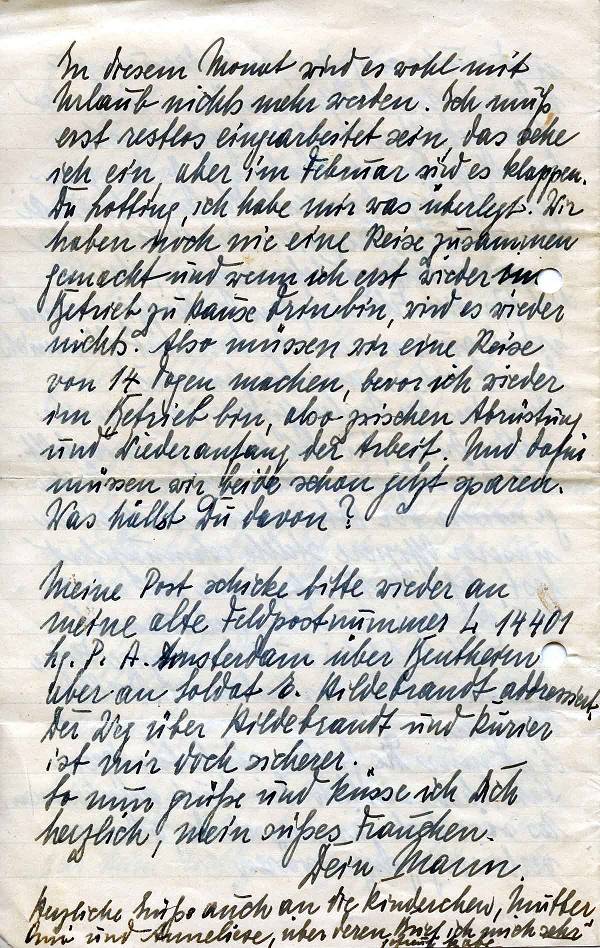 In diesem Monat wird es wohl mit
Urlaub nichts mehr werden. Ich muß
erst restlos eingearbeitet sein, das sehe
ich ein, aber im Februar wird es klappen.
Du Lotting, ich habe mir was überlegt. Wir
haben noch nie eine Reise zusammen
gemacht und wenn ich erst wieder im
Betrieb zu Hause drin bin, wird es wieder
nichts. Also müssen wir eine Reise
von 14 Tagen machen, bevor ich wieder
im Betrieb bin, also zwischen Abrüstung
und Wiederanfang der Arbeit. Und dafür
müssen wir beide schon jetzt sparen.
Was hällst Du davon?
Meine Post schicke bitte wieder an
meine alte Feldpostnummer L 14401
Lg. P. A. Amsterdam über Bentheim
aber an Soldat E. Hildebrandt addressiert.
Der Weg über Hildebrandt und Kurier
ist mir doch sicherer.
So nun grüße und küsse ich Dich
herzlich, mein süßes Frauchen.
Dein Mann.
Herzliche Grüße auch an die Kinderchen, Mutter
und Anneliese, über deren Brief ich mich sehr
habe